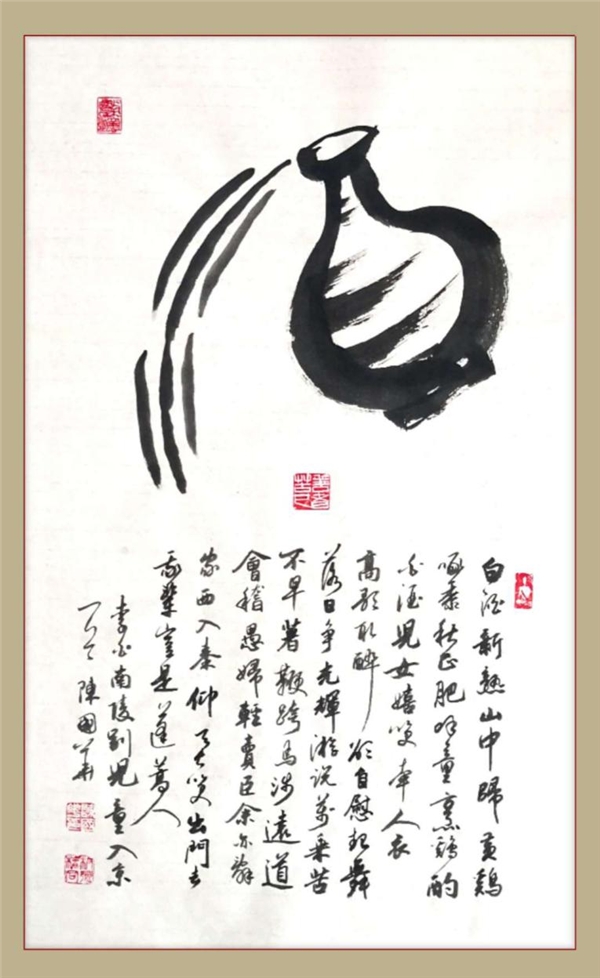 白酒新熟山中歸黃鷄
啄黍秋正肥呼童烹鷄酌
白酒兒女嬉笑牽人衣
高歌取醉欲自慰起舞
落日爭光輝游説萬乘苦
不早著鞭跨馬涉遠道
會稽愚婦輕買臣余亦辭
家西入秦仰天大笑出門去
我輩豈是蓬蒿人
李白南陵別兒童入京
陳國華